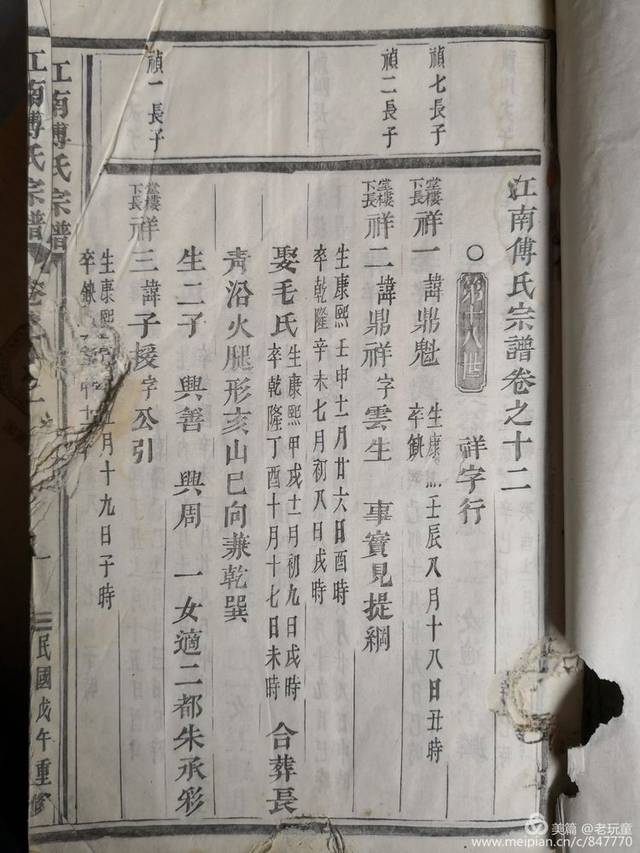 江南傅氏宗譜卷之十二
第十八世 祥字行
禎七長子
棠樓下長 祥一 諱鼎魁 生康熙壬辰八月十八日丑時 卒缺
禎二長子
棠樓下長 祥二 諱鼎祥 字雲生 事實見提綱
生康熙壬申十一月廿六日酉時
卒乾隆辛未七月初八日戌時
娶毛氏 生康熙甲戌十一月初九日戌時 卒乾隆丁酉十月十七日未時 合葬長
青浴火腿形亥山巳向兼乾巽
生二子 興善 興周 一女適二都朱承彩
禎一長子
棠樓下長 祥三 諱子援 字公引
生康熙 月十九日子時
卒缺
江南傅氏宗譜
民國戊午重修
江南傅氏宗譜
美篇 @老玩童
www.meipian.cn/c/847770